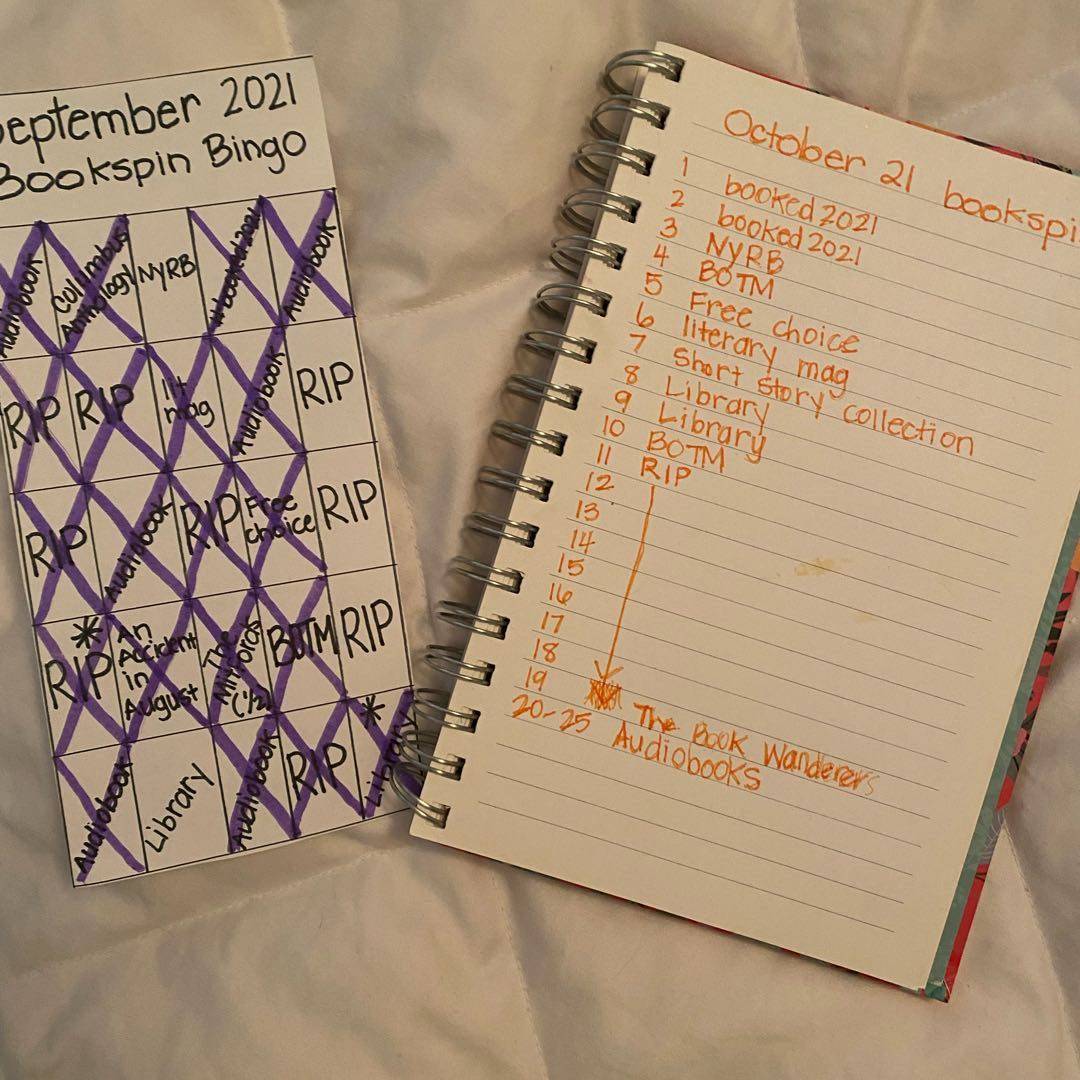 September 2021
Bookspin Bingo
Audiobook
Columbus
Anthology
NYRB
#booked2021
Audiobook
RIP
RIP
lit
mag
Audiobook
RIP
RIP
Audiobook
RIP
Free
choice
RIP
*
RIP
An
Accident
in
August
The
(1/2)
BOTM
RIP
Audiobook
Library
Audiobook
RIP
*
Library
October 21 bookspi
1 booked 2021
2 booked 2021
3 NYRB
4 BOTM
5 Free choice
6 literary mag
7 Short story collection
8 Library
9 Library
10 BOTM
11 RIP
12
13
14
15
16
17
18
19 The Book Wanderers
20-25 Audiobooks